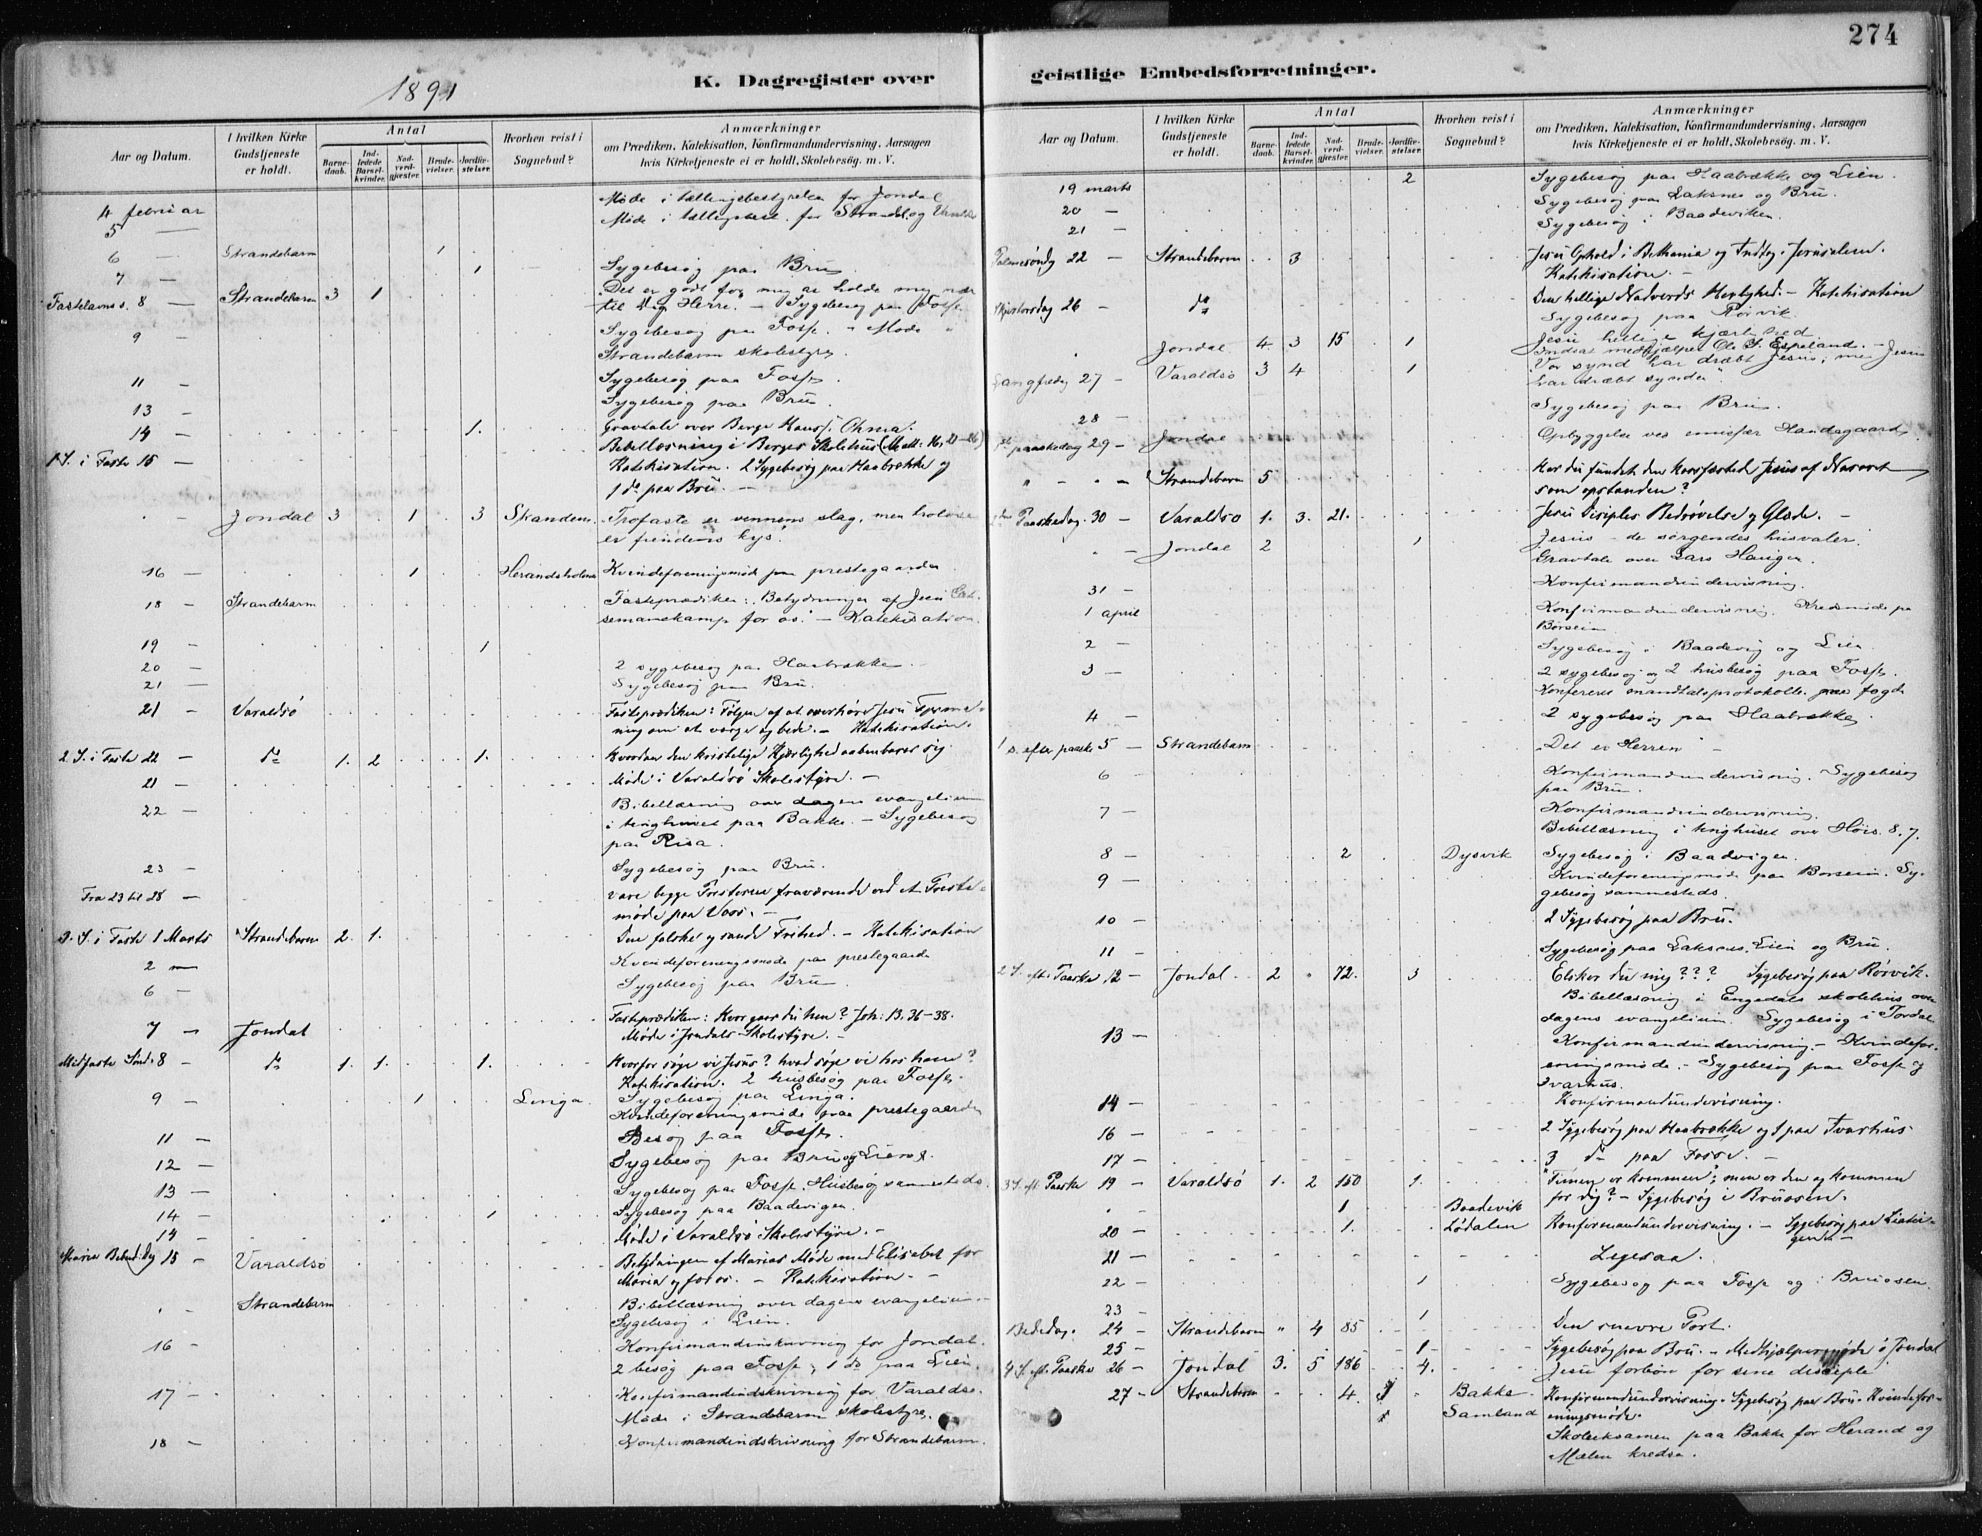 274
1891
K. Dagregister over
geistlige Embedsforretninger.
Aar og Datum.
I hvilken Kirke Gudstjeneste er holdt.
Antal
Barnedaab.
Indledede Barselkvinder.
Nadverdgjester.
Brudevielser.
Jordfæstelser.
Hvorhen reist i Sognebud?
Anmærkninger
om Prædiken, Katekisation, Konfirmandundervisning, Aarsagen
hvis Kirketjeneste ei er holdt, Skolebesøg. m. V.
4 februar Møde i tællingsbestyrelsen for Jondal
5 — Møde i for Strandeb. og
6 — Strandebarm 1
7 — 1 Sygebesøg paa Bru
Fastelavns s. 8 — Strandebarm 3 1 Det er godt for mig at holde mig nær
til Dig Herre. — Sygebesøg paa Fosse
9 — Sygebesøg paa Fosse. — Møde i
Strandebarm skolestyre.
11 — Sygebesøg paa Fosse.
13 — Sygebesøg paa Bru.
14 — 1. Gravtale over Berge Hans.
1 S. i Faste 15 — Bibellæsning i Berges Skolehus (Matt: 16, 21–26)
Katekisation. 2 Sygebesøg paa Haabrekke og
1 do paa Bru. —
" — Jondal 3 1 3 Skanden. Trofaste er vennens slag, men
er fiendens kys.
16 — 1 Herandsholmen Kvindeforeningsmøde paa prestegaarden
18 — Strandebarm Fasteprædiken: Betydningen af Jesu Get-
semanekamp for os. — Katekisation.
19 — 1
20 — 2 sygebesøg paa Haabrekke.
21 — Sygebesøg paa Bru.
21 — Varaldsö Fasteprædiken: Følgen af at overhøre Jesu
ning om at vaage og bede. — Katekisation.
2 S. i Faste 22 — do 1. 2 1. Hvordan den kristelige Kjærlighed aabenbarer sig.
21 — Møde i Varaldsö Skolestyre. —
22 — Bibellæsning over dagens evangelium
i tinghuset paa Bakke. — Sygebesøg
paa Risa.
23 — Sygebesøg paa Bru.
Fra 23 til 28 — vare begge Presterne fraværende ved et Preste-
møde paa Voss. —
3. S. i Faste 1 Marts Strandebarm 2. 1. Den falske og sande Frihed. — Katekisation
2 — Kvindeforeningsmøde paa prestegaarden
6 — Sygebesøg paa Bru
7 — Jondal Fasteprædiken: Hvor gaar du hen? Joh: 13. 36–38.
Møde i Jondals Skolestyre. —
Midfaste Sönd. 8 — do 1. 1. 1. Hvorfor søge vi Jesus? hvad søge vi hos ham?
Katekisation. 2 husbesøg paa Fosse.
9 — 1 Linga. Sygebesøg paa Linga.
Kvindeforeningsmøde paa prestegaarden
11 — Besøg paa Fosse.
12 — Sygebesøg paa Bru og Lien.
13 — Sygebesøg paa Fosse. Husbesøg sammesteds.
14 — 1 Sygebesøg paa Baadevigen.
14 — Møde i Varaldsö Skolestyre. —
Maria Bebud. dag 15 — Varaldsö Betydningen af Marias Møde med Elisabet for
Maria og for os. — Katekisation. —
" — Strandebarm Bibellæsning over dagens evangelium —
Sygebesøg i Lien.
16 — Konfirmandindskrivning for Jondal.
2 besøg paa Fosse, 1 do paa Lien.
17 — Konfirmandindskrivning for Varaldsö.
Møde i Strandebarm skolestyre.
18 — Konfirmandindskrivning for Strandebarm.
Aar og Datum.
I hvilken Kirke Gudstjeneste er holdt.
Antal
Barnedaab.
Indledede Barselkvinder.
Nadverdgjester.
Brudevielser.
Jordfæstelser.
Hvorhen reist i Sognebud?
Anmærkninger
om Prædiken, Katekisation, Konfirmandundervisning, Aarsagen
hvis Kirketjeneste ei er holdt, Skolebesøg. m. V.
19 marts 2 Sygebesøg paa Haabrekke og Lien.
20 — Sygebesøg paa Laksnes og Bru.
21 — Sygebesøg i Baadeviken.
Palmesøndg 22 — Strandebarm 3 Jesu Ophold i Bethania og Indtog i Jerusalem.
Katekisation. —
Skjærtorsdag 26 — do Den hellige Nadverds Herlighed. — Katekisation
Sygebesøg paa Rørvik.
" Jondal 4 3 15 1 Jesu hellige kjærlighed.
Indsat medhjælper Ole S. Espeland. —
Langfredg 27 — Varaldsö 3 4 1 "Vor synd har dræbt Jesus; men Jesus
har dræbt synden".
28 — Sygebesøg paa Bru.
1ste paaskedag 29 — Jondal Opbyggelse ved Handegaard
" — " — Strandebarm 5 Har du fundet den korsfæsted Jesus af Nasaret
som opstanden?
2den Paaskedag. 30 — Varaldsö 1. 3. 21. Jesu Disiples Bedrøvelse og Glæde. —
" — Jondal 2 1 Jesus — de sørgendes husvaler.
Gravtale over Lars Haugen
31 — Konfirmandundervisning.
1 april Konfirmandundervisning. Kredsmøde paa
Børsein
2 — Sygebesøg i Baadevig og Lien.
3 — 2 sygebesøg og 2 husbesøg paa Fosse.
Konfereret mandtalsprotokolle paa fogd
4 — 2 sygebesøg paa Haabrekke
1 s. efter paaske 5 — Strandebarm "Det er Herren" —
6 — Konfirmandundervisning. Sygebesøg
paa Bru.
7 — Konfirmandundervisning.
Bibellæsning i tinghuset over Høis. 8, 7.
8 — 2 Dysvik Sygebesøg i Baadvigen.
9 — Kvindeforeningsmøde paa Børsein. Sy-
gebesøg sammesteds.
10 — 2 Sygebesøg paa Bru.
11 — Sygebesøg paa Laksnes, Lien og Bru.
2 S. eft. Paaske 12 — Jondal. 2 " 72. 3 Elsker du mig??? Sygebesøg paa Rørvik.
Bibellæsning i Engedals skolehus over
dagens evangelium. Sygebesøg i Jordal
13 — Konfirmandundervisning. — Kvindefor-
eningsmøde. — Sygebesøg paa Fosse og
Tvarhus.
14 — Konfirmandundervisning.
16 — 2 Sygebesøg paa Haabrekke og 1 paa Tvarhus
17 — 3 do paa Fosse. —
3 S. eft. Paaske 19 — Varaldsö 1. 2 150 1. "Timen er kommen"; men er den og kommen
for dig? — Sygebesøg i Bruosen.
" 1 Baadevik
20 — 1. Lødalen Konfirmandundervisning. — Sygebesøg paa
21 — Legesaa.
22 — 1 Sygebesøg paa Fosse og i Bruosen
23 — 1
Bededag. 24 — Strandebarm " 4 85 Den snevre Port.
25 — 1 Sygebesøg paa Bru. — Medhjælpermøde i Jondal
4 S. eft. Paaske 26 — Jondal 3. 5 186 4. Jesu forbøn for sine disciple
27 — Strandebarm 4 Bakke Konfirmandundervisning. Sygebesøg paa Bru. Kvindefor-
Samland eningsmøde.
Skoleeksamen paa Bakke for Herand og
Mælen kredse.